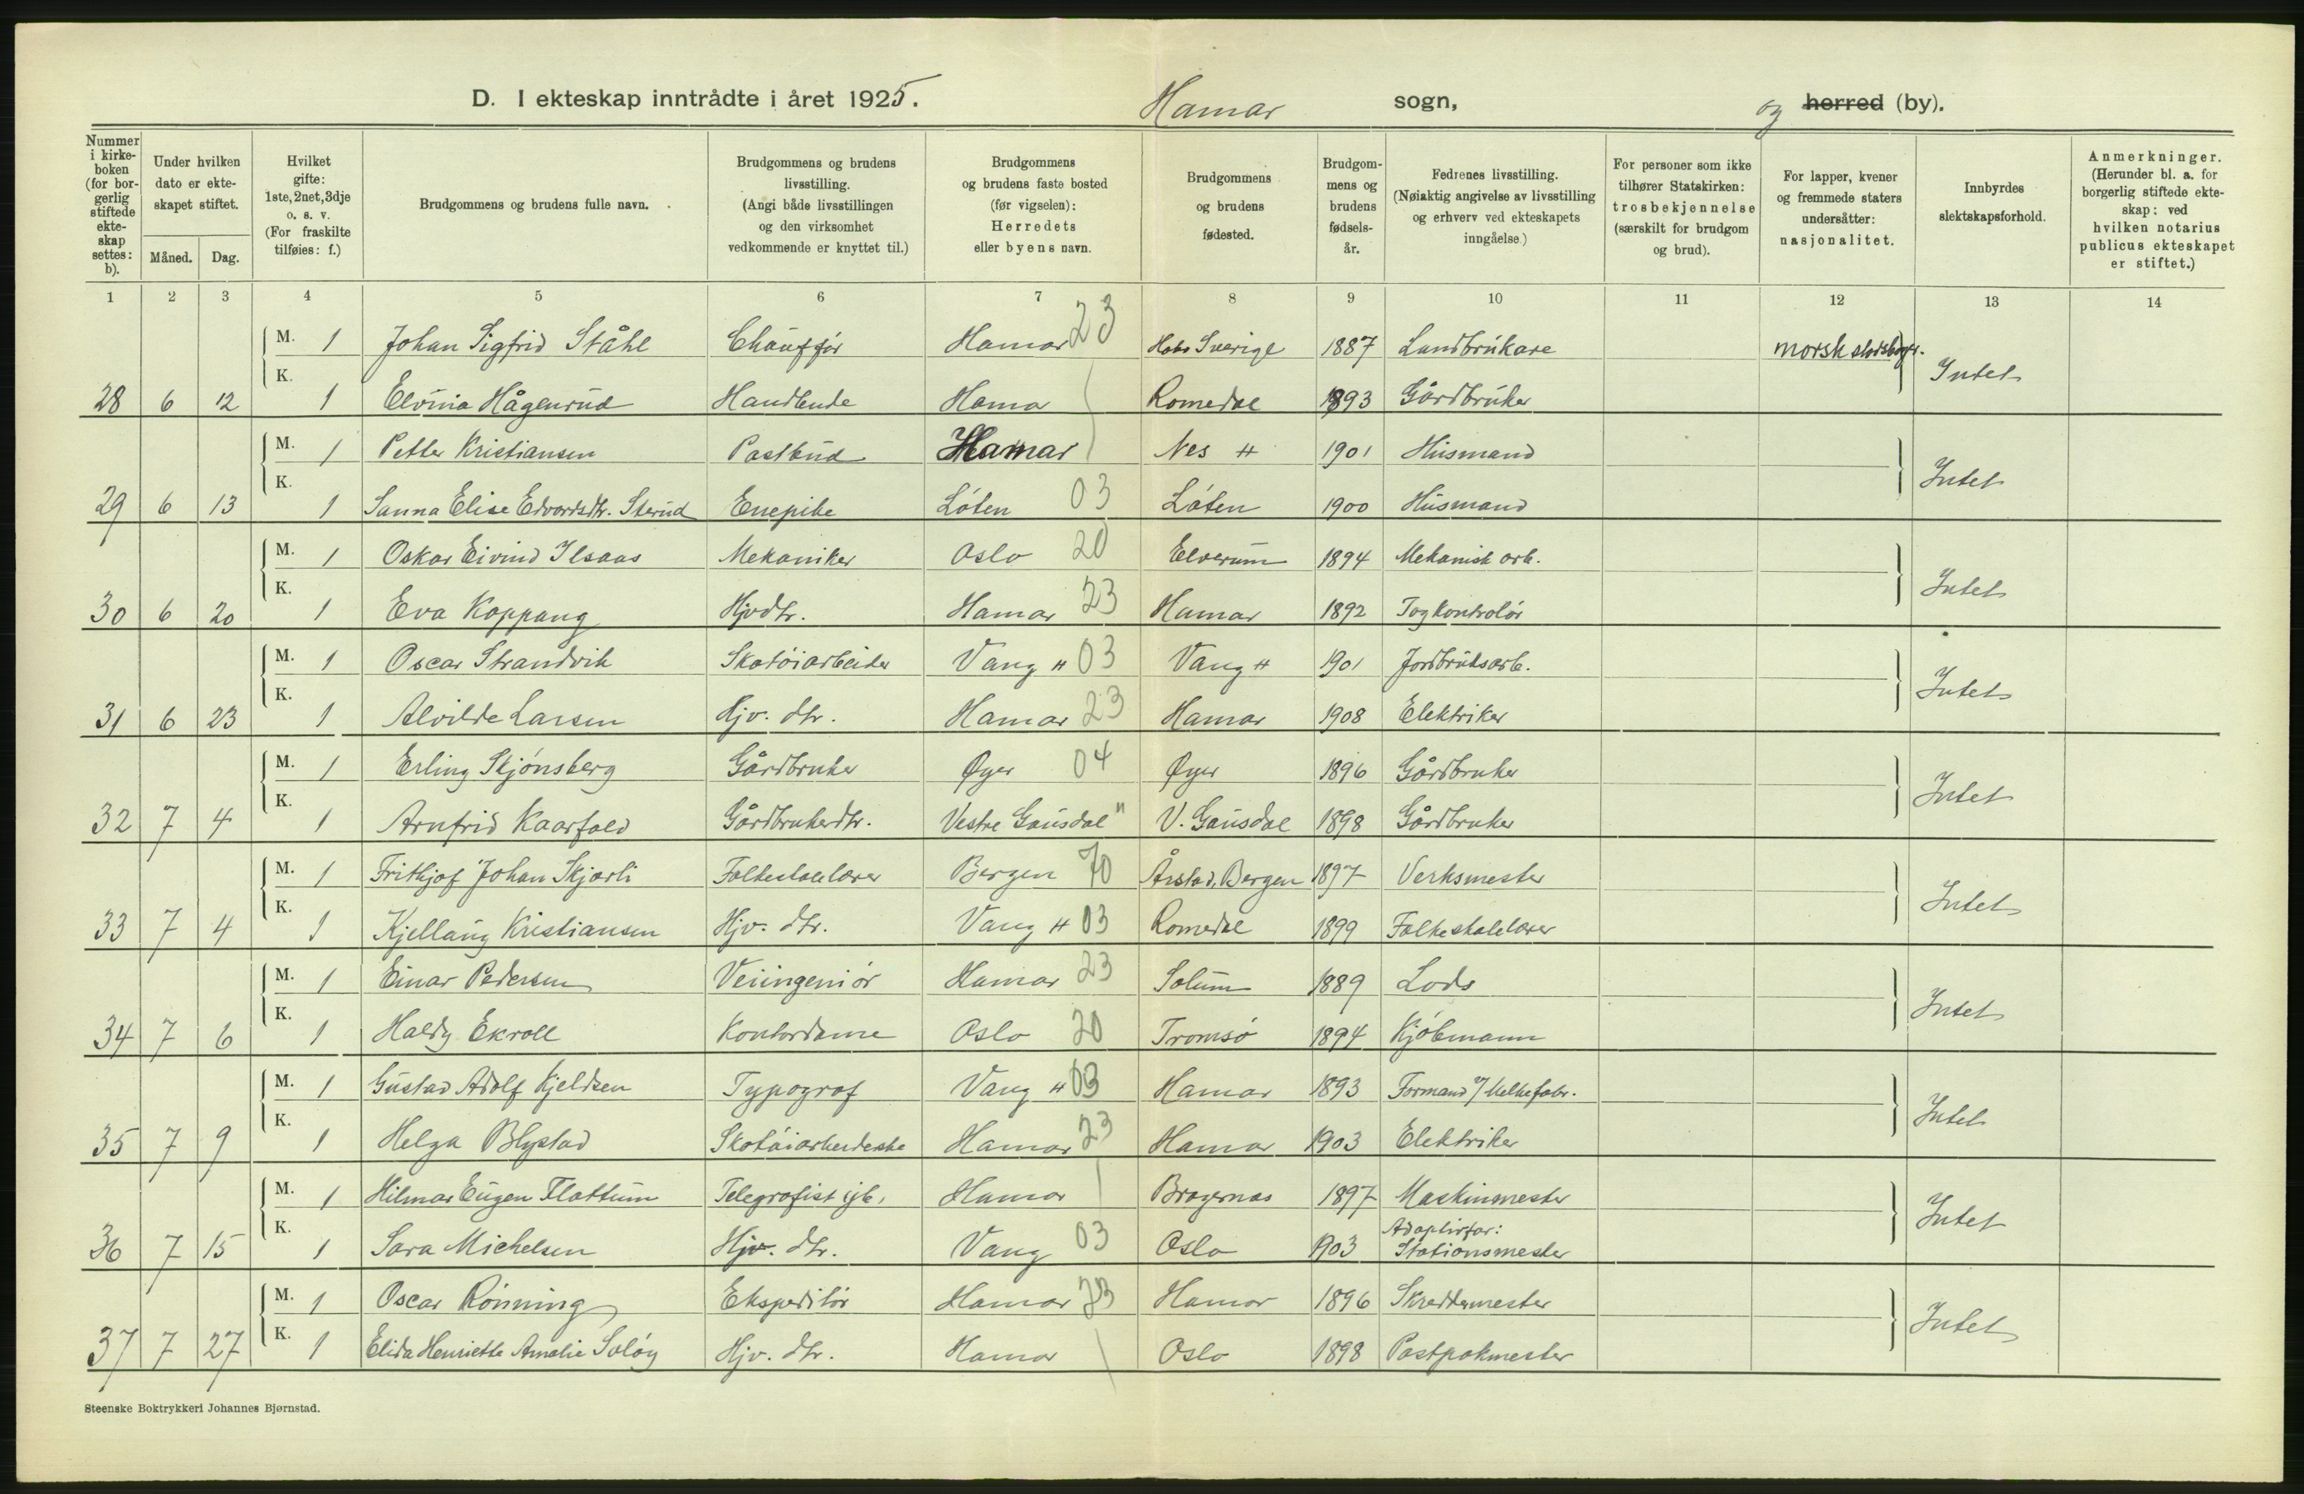 D. I ekteskap inntrådte i året 1925. Hamar sogn, og herred (by).
Nummer i kirke-boken (for bor-gerlig stiftede ekte-skap settes: b).
Under hvilken dato er ekte-skapet stiftet.
Måned. Dag.
Hvilket gifte: 1ste, 2net, 3dje o. s. v. (For fraskilte tilføies: f.)
Brudgommens og brudens fulle navn.
Brudgommens og brudens livsstilling. (Angi både livsstillingen og den virksomhet vedkommende er knyttet til.)
Brudgommens og brudens faste bosted (før vigselen): Herredets eller byens navn.
Brudgommens og brudens fødested.
Brudgom-mens og brudens fødsels-år.
Fedrenes livsstilling. (Nøiaktig angivelse av livsstilling og erhverv ved ekteskapets inngåelse.)
For personer som ikke tilhører Statskirken: trosbekjennelse (særskilt for brudgom og brud).
For lapper, kvener og fremmede staters undersåtter: nasjonalitet.
Innbyrdes slektskapsforhold.
Anmerkninger. (Herunder bl. a. for borgerlig stiftede ekte-skap: ved hvilken notarius publicus ekteskapet er stiftet.)
1 2 3 4 5 6 7 8 9 10 11 12 13 14
M. 1 Johan Sigfrid Ståhl Chauffør Hamar 23 Sverige 1887 Landbrukare norsk statsborgr.
28 6 12 K. 1 Elvina Hågenrud Handlende Hamar Romedal 1893 Gårdbruker Intet
M. 1 Petter Kristiansen Postbud Hamar Nes H 1901 Husmand
29 6 13 K. 1 Sanna Elise Edvardsdtr. Sterud Enepike Löten 03 Löten 1900 Husmand Intet
M. 1 Oskar Eivind Ilsaas Mekaniker Oslo 20 Elverum 1894 Mekanisk arb.
30 6 20 K. 1 Eva Koppang Hjvdtr. Hamar 23 Hamar 1892 Togkontrolör Intet
M. 1 Oscar Strandvik Skotöiarbeider Vang H 03 Vang H 1901 Jordbruksarb.
31 6 23 K. 1 Alvilde Larsen Hjv. dtr. Hamar 23 Hamar 1908 Elektriker Intet
M. 1 Erling Skjönsberg Gårdbruker Øyer 04 Øyer 1896 Gårdbruker
32 7 4 K. 1 Arnfrid Kaarfald Gårdbrukerdtr. Vestre Gausdal " V. Gausdal 1898 Gårdbruker Intet
M. 1 Frithjof Johan Skjerli Folkeskolelærer Bergen 70 Årstad, Bergen 1897 Verksmester
33 7 4 K. 1 Kjellaug Kristiansen Hjv. dtr. Vang H 03 Romedal 1899 Folkeskolelærer Intet
M. 1 Einar Pedersen Veiingeniör Hamar 23 Solum 1889 Lods
34 7 6 K. 1 Haldy Ekroll Kontordame Oslo 20 Tromsö 1894 Kjöbmann Intet
M. 1 Gustav Adolf Kjeldsen Typograf Vang H 03 Hamar 1893 Formand v/ Melkefabr.
35 7 9 K. 1 Helga Blystad Skotöiarbeiderske Hamar 23 Hamar 1903 Elektriker Intet
M. 1 Hilmar Eugen Flattum Telegrafist Hamar Bragernes 1897 Maskinmester
36 7 15 K. 1 Sara Michelsen Hjv. dtr. Vang 03 Oslo 1903 Adoptivfar: Stationsmester Intet
M. 1 Oscar Rönning Ekspeditör Hamar 23 Hamar 1896 Skreddermester
37 7 27 K. 1 Elida Henriette Amalie Solöy Hjv. dtr. Hamar Oslo 1898 Postpakmester Intet
Steenske Boktrykkeri Johannes Bjørnstad.